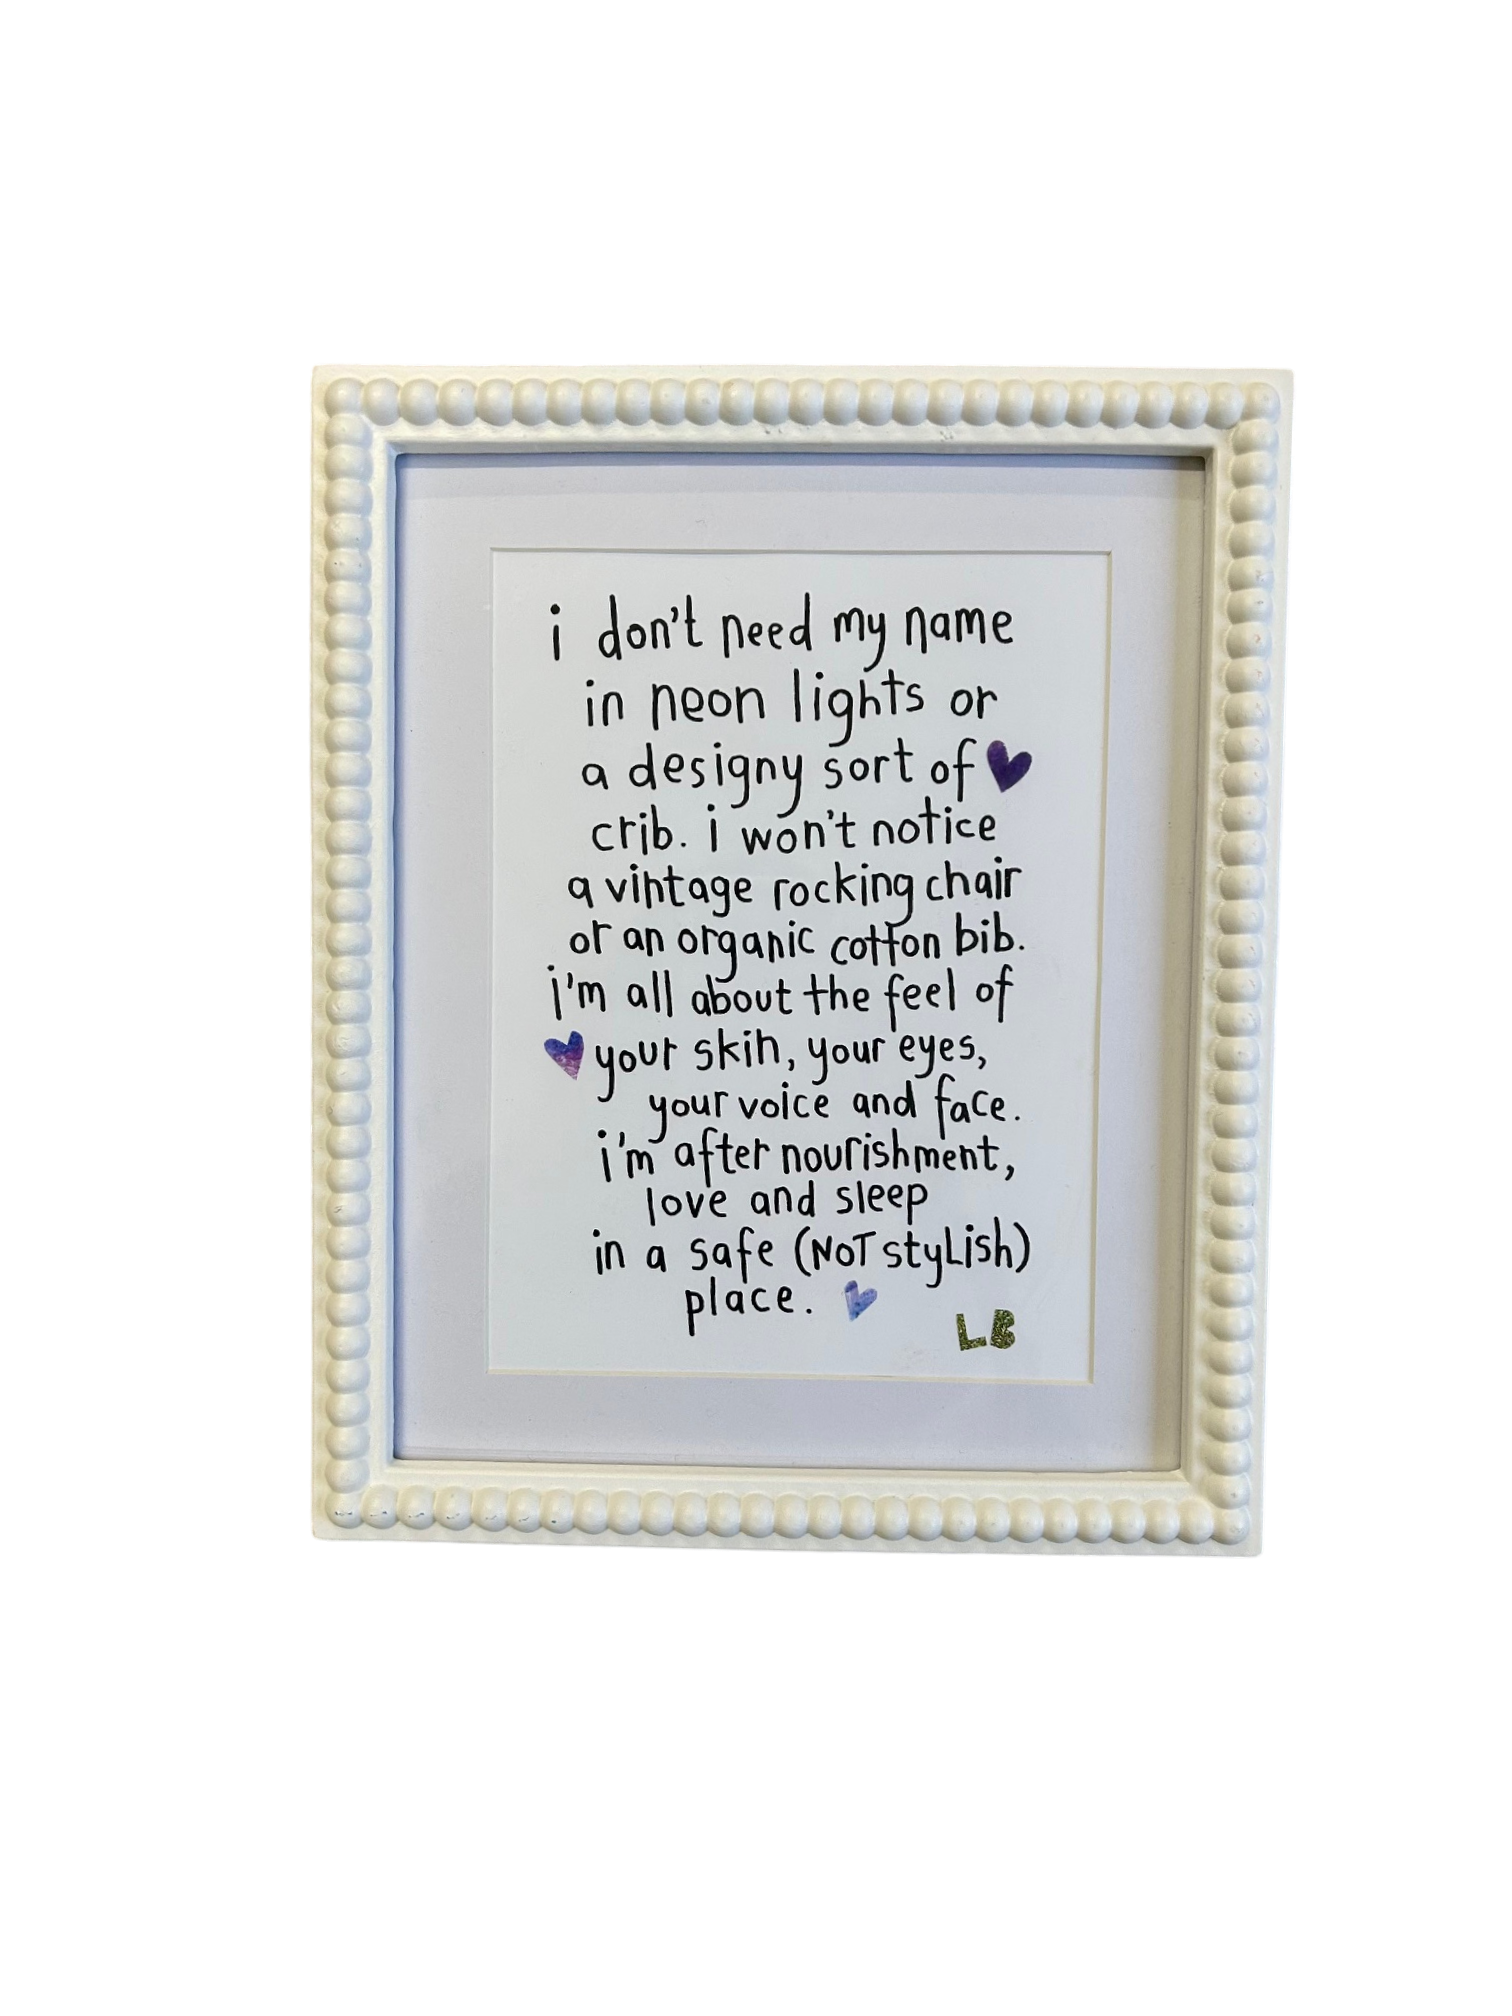 i don't need my name
in neon lights or
a designy sort of
crib. i won't notice
a vintage rocking chair
or an organic cotton bib.
i'm all about the feel of
your skin, your eyes,
your voice and face.
i'm after nourishment,
love and sleep
in a safe (NOT stylish)
place.
LB